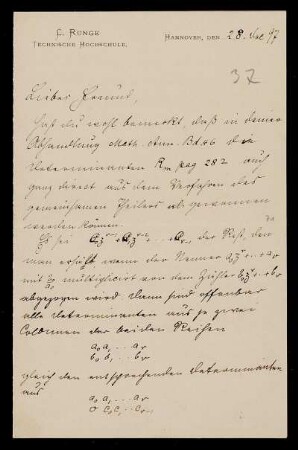 C. RUNGE
TECHNISCHE HOCHSCHULE.
HANNOVER, DEN 28. Dec 97
37
Lieber Freund,
hast du wohl bemerkt, daß in deiner
Abhandlung Math. Ann. Bd. 46 die
Determinanten R pag 282 auch
ganz direct aus dem Verfahren des
gemeinsamen Theilers abgewonnen
werden können.
Es sei der Rest, den
man erhält wenn der Nenner
mit multiplicirt von dem Zähler
abgezogen wird dann sind offenbar
alle Determinanten aus je zwei
Colonnen der beiden Reihen
a₀ a₁ . . . aᵥ
b₀ b₁ . . . bᵥ
gleich den entsprechenden Determinanten
aus
a₀ a₁ . . . aᵥ
0 c₀ c₁ . . cᵥ₋₁